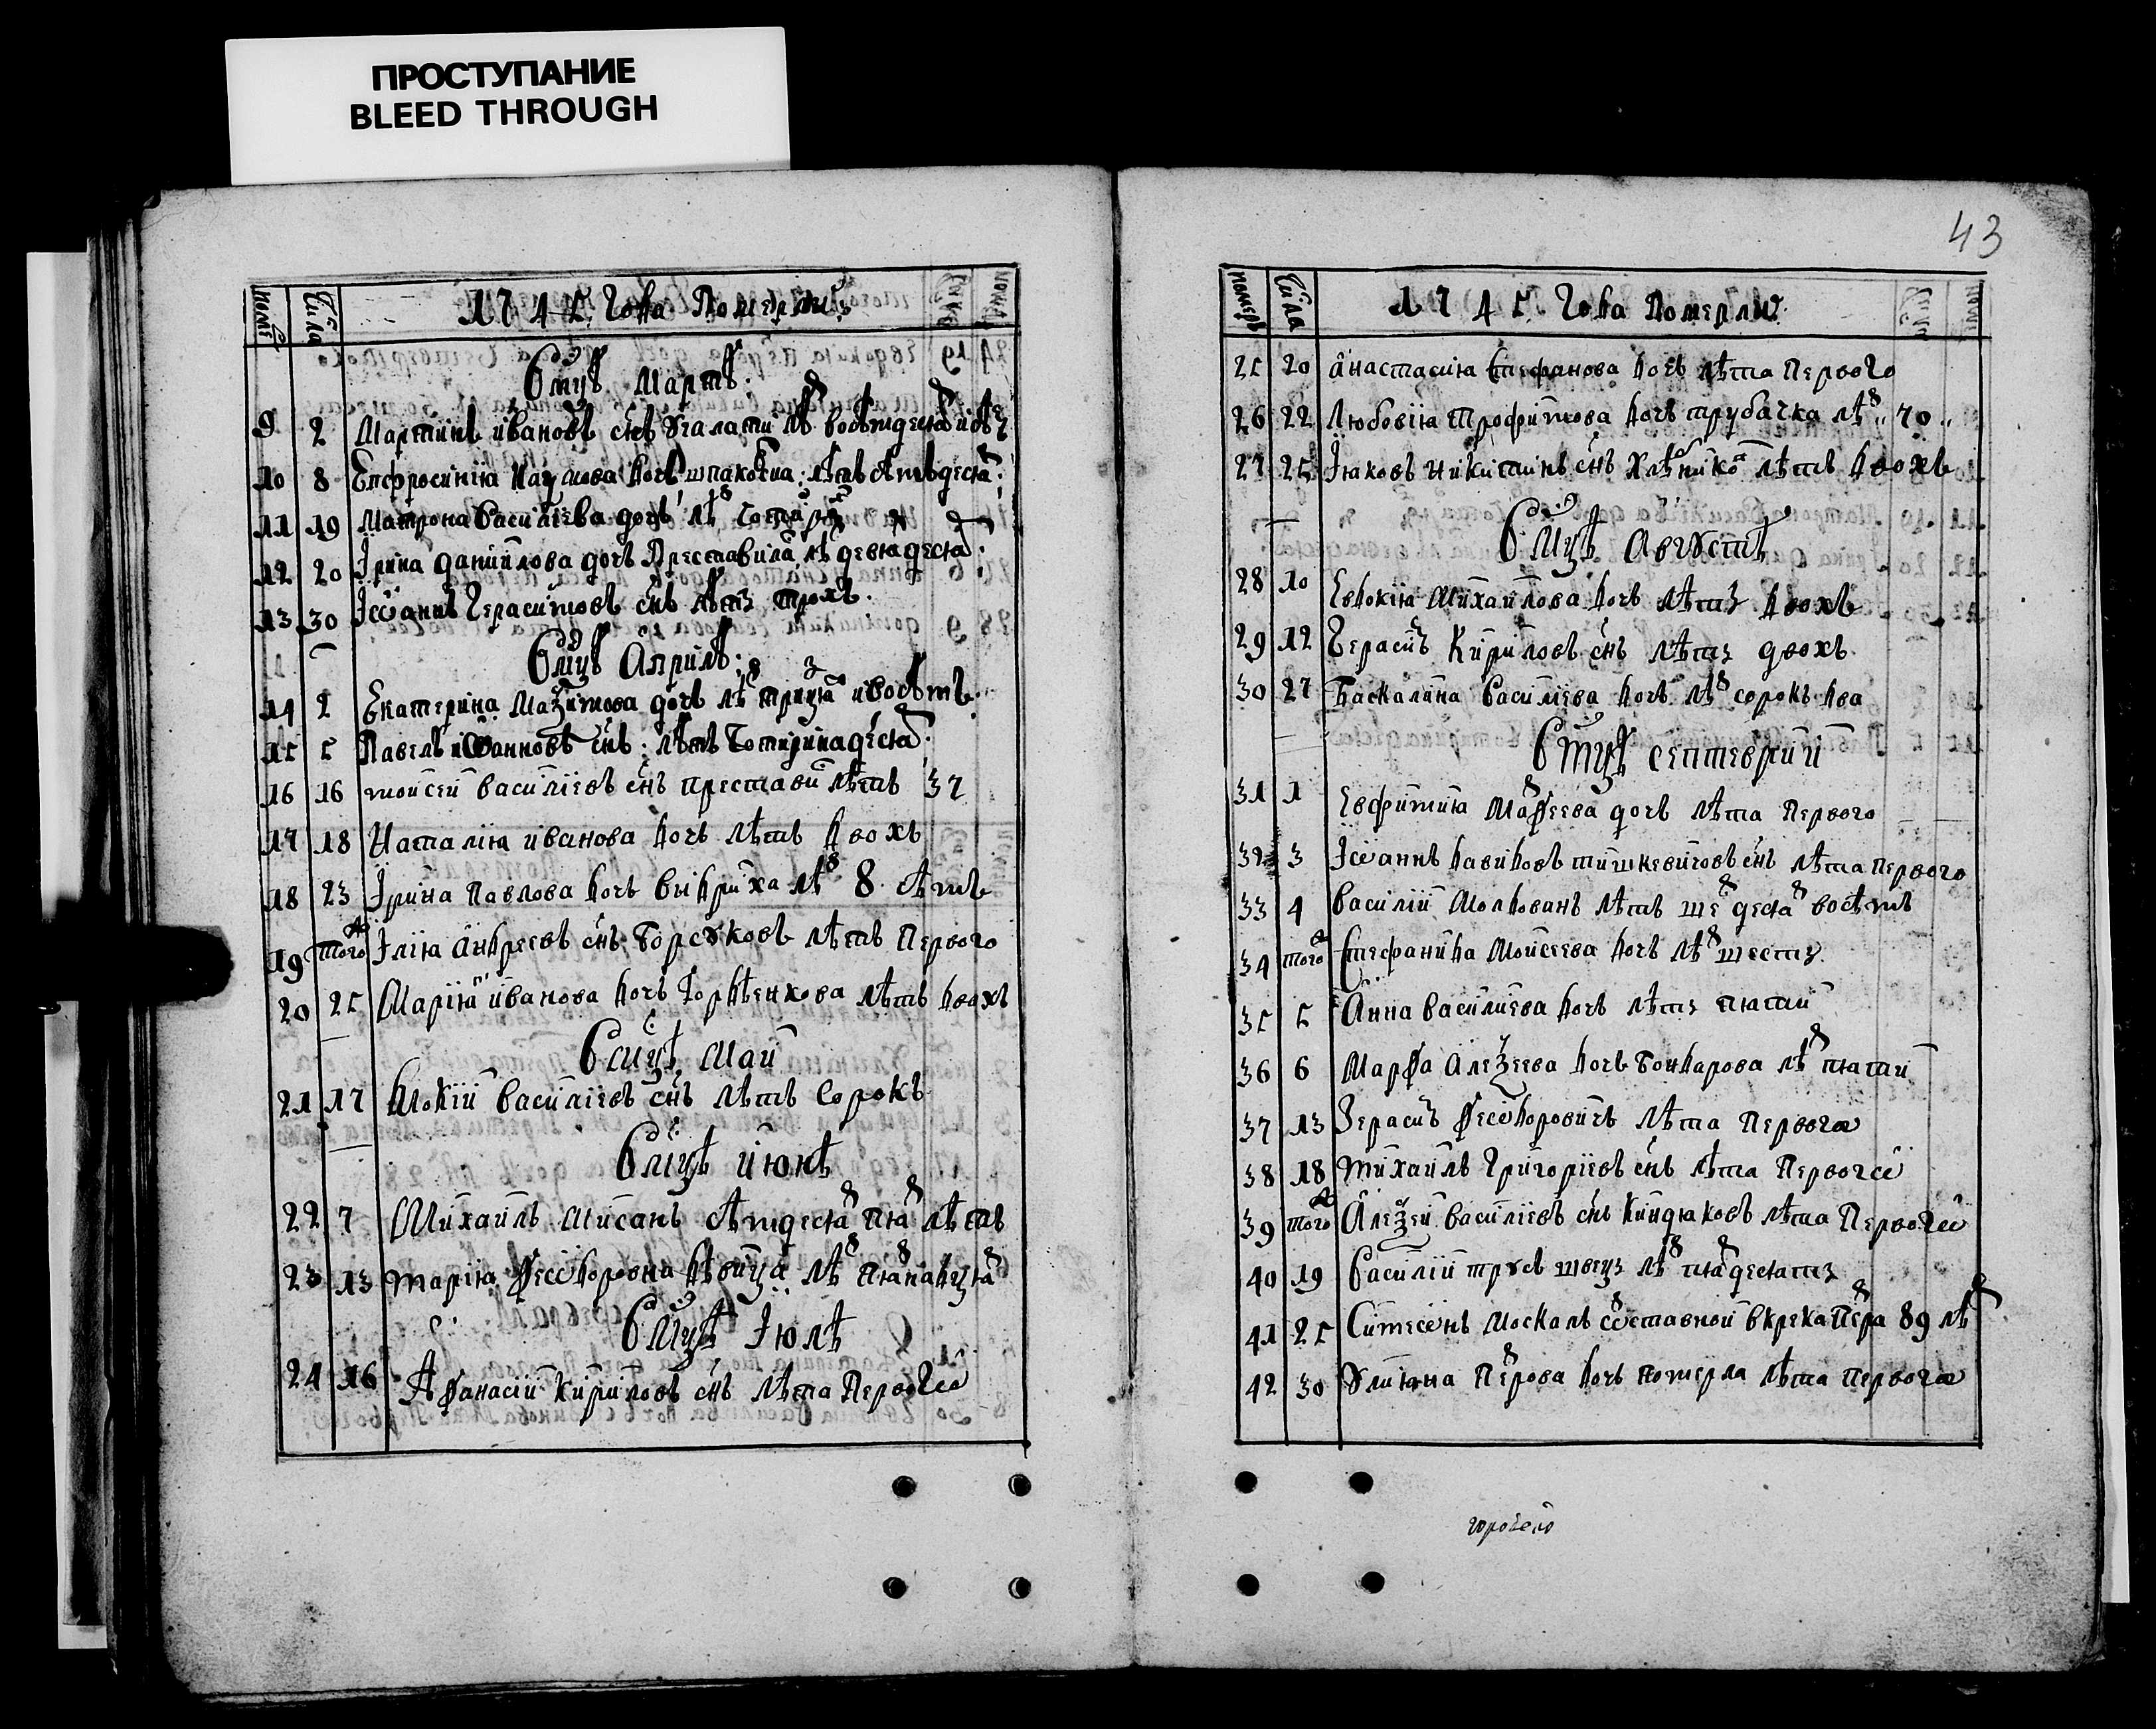 ПРОСТУПАНИЕ
BLEED THROUGH
числа 1745 года Померли
Мцъ Мартъ
9 2 Мартинъ ивановъ снъ лѣ восѣмдеся
10 8 Епфросинія дочь лѣтъ сѣмъдеся
11 19 Матрона Василіева дочь лѣ
12 20 Ірина даниилова дочь Преставила лѣ девядеся
13 30 Іѡаннъ Герасимовъ снъ лѣтъ трохъ
Мцъ Априлъ
14 2 Екатерина Мазимова дочь лѣ трица и восѣмъ
15 5 Павелъ иѡанновъ снъ лѣтъ
16 16 моисей василіевъ снъ престави лѣтъ 37
17 18 Наталія иванова дочь лѣтъ двохъ
18 23 Ірина Павлова дочь лѣ 8 сѣмъ
19 того Ілія андреевъ снъ Борсуковъ лѣтъ Первого
20 25 Марія иванова дочь лѣтъ двохъ
Мцъ Май
21 17 василіевъ снъ лѣтъ Сорокъ
Мцъ июнѣ
22 7 Михаилъ Мисанъ сѣмдеся пя лѣтъ
23 13 марія Ѳеѡдоровна дѣвица лѣ
Мцъ Іюлѣ
24 16 Аѳанасій Кириловъ снъ лѣта Первогѡ
43
номеръ числа 1745 года Померли
25 20 анастасия Стефанова дочъ лѣта Первого
26 22 Любовія Трофимова дочъ трубачка лѣ 70
27 25 Іяковъ никитинъ снъ лѣтъ двохъ
Мцъ Августъ
28 10 Евдокія Михаилова дочъ лѣтъ двохъ
29 12 Герасимъ Кириловъ снъ лѣтъ двохъ
30 27 Васкалина Василіева дочъ лѣ сорокъ два
Мцъ септеврий
31 1 Евфимия Маѳеева дочъ лѣта Первого
32 3 Іѡаннъ давидовъ тишкевичовъ снъ лѣта первого
33 4 василій Молдованъ лѣтъ ше деся восѣмъ
34 того Стефанида Моисеева дочъ лѣ шести
35 5 Анна василиева дочъ лѣтъ пяти
36 6 Марѳа Алеѯеева дочъ Бондарова лѣ пяти
37 13 Герасимъ Ѳеѡдоровичъ лѣта Первогѡ
38 18 михаилъ Григоріевъ снъ лѣта Первогѡ
39 того Алеѯей василіевъ снъ Киндяковъ лѣта Первогѡ
40 19 Василій трусъ швецъ лѣ пядесятъ
41 25 Симеѡнъ Москаль ѡставной 89 лѣ
42 30 Улияна Перова дочъ померла лѣта первогѡ